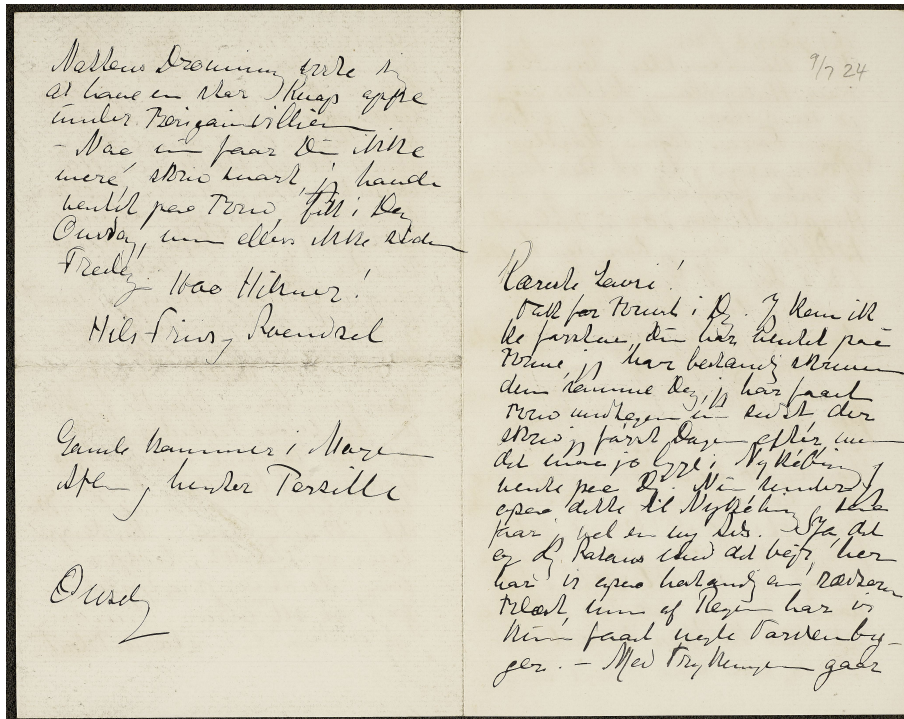 Nattens Dronning viste sig
at have en stor Knap oppe
under Bougainvillien
– Naa nu faar Du ikke
mere, skriv snart, jeg havde
ventet paa Brev, fik i Dag
Onsdag, men ellers ikke siden
Fredag. 1000 Hilsner!
Hils Friis og Svendsel
Gamle kommer i Morgen
Aften og henter Persille
Onsdag
9/7 24
Kæreste Lausi!
Tak for Brevet i Dag. Jeg kan ik
ke forstaa, Du har ventet paa
Brevene, jeg har bestandig skrevet
dem samme Dag, jeg har faaet
Brev undtagen nu sidst der
skrev jeg først Dagen efter, men
det maa jo ligge i Nykøbing og
vente paa Dig. Nu sender jeg
ogsaa dette til Nykøbing, saa
faar jeg vel en ny
og dog Ratans med det Vejr, her
har vi ogsaa bestandig en rædsom
Blæst, men af Regn har vi
kun faaet nogle Tordenby-
ger. – Med Trykningen gaar